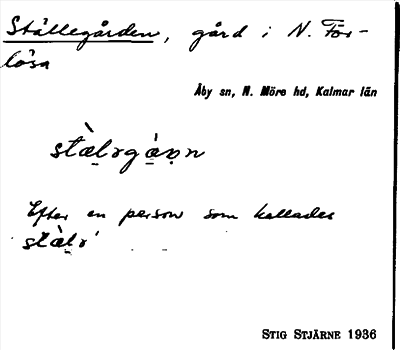 Ställegården, gård i N. För-
lösa
Åby sn, N. Möre hd, Kalmar län
stæ̀lrgɑ́ɳ
Efter en person som kallades
stæ̀lr
STIG STJÄRNE 1936